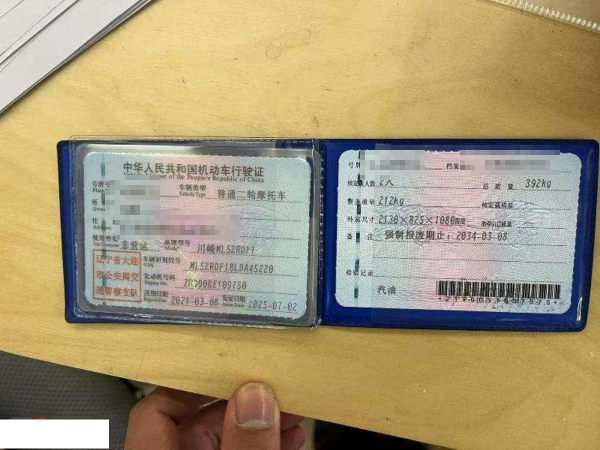 中华人民共和国机动车行驶证
of the People's Republic of China
号牌
车辆类型
Vehicle Type
普通二轮摩托车
使用性质
非营运
品牌型号
川崎ML5ZRDF1
辽宁省大连
市公安局交
通警察支队
车辆识别代号
VIN
ML5ZRDF18LDA45220
发动机号码
Engine No.
注册日期
2021-03-08
发证日期
Issue Date
2025-07-02
号牌
档案
核定载人数
2人
总质量
392kg
整备质量
212kg
核定载质量
外廓尺寸
2130×825×1080mm
准牵引总质量
备注
强制报废期止：2034-03-08
检验记录
汽油